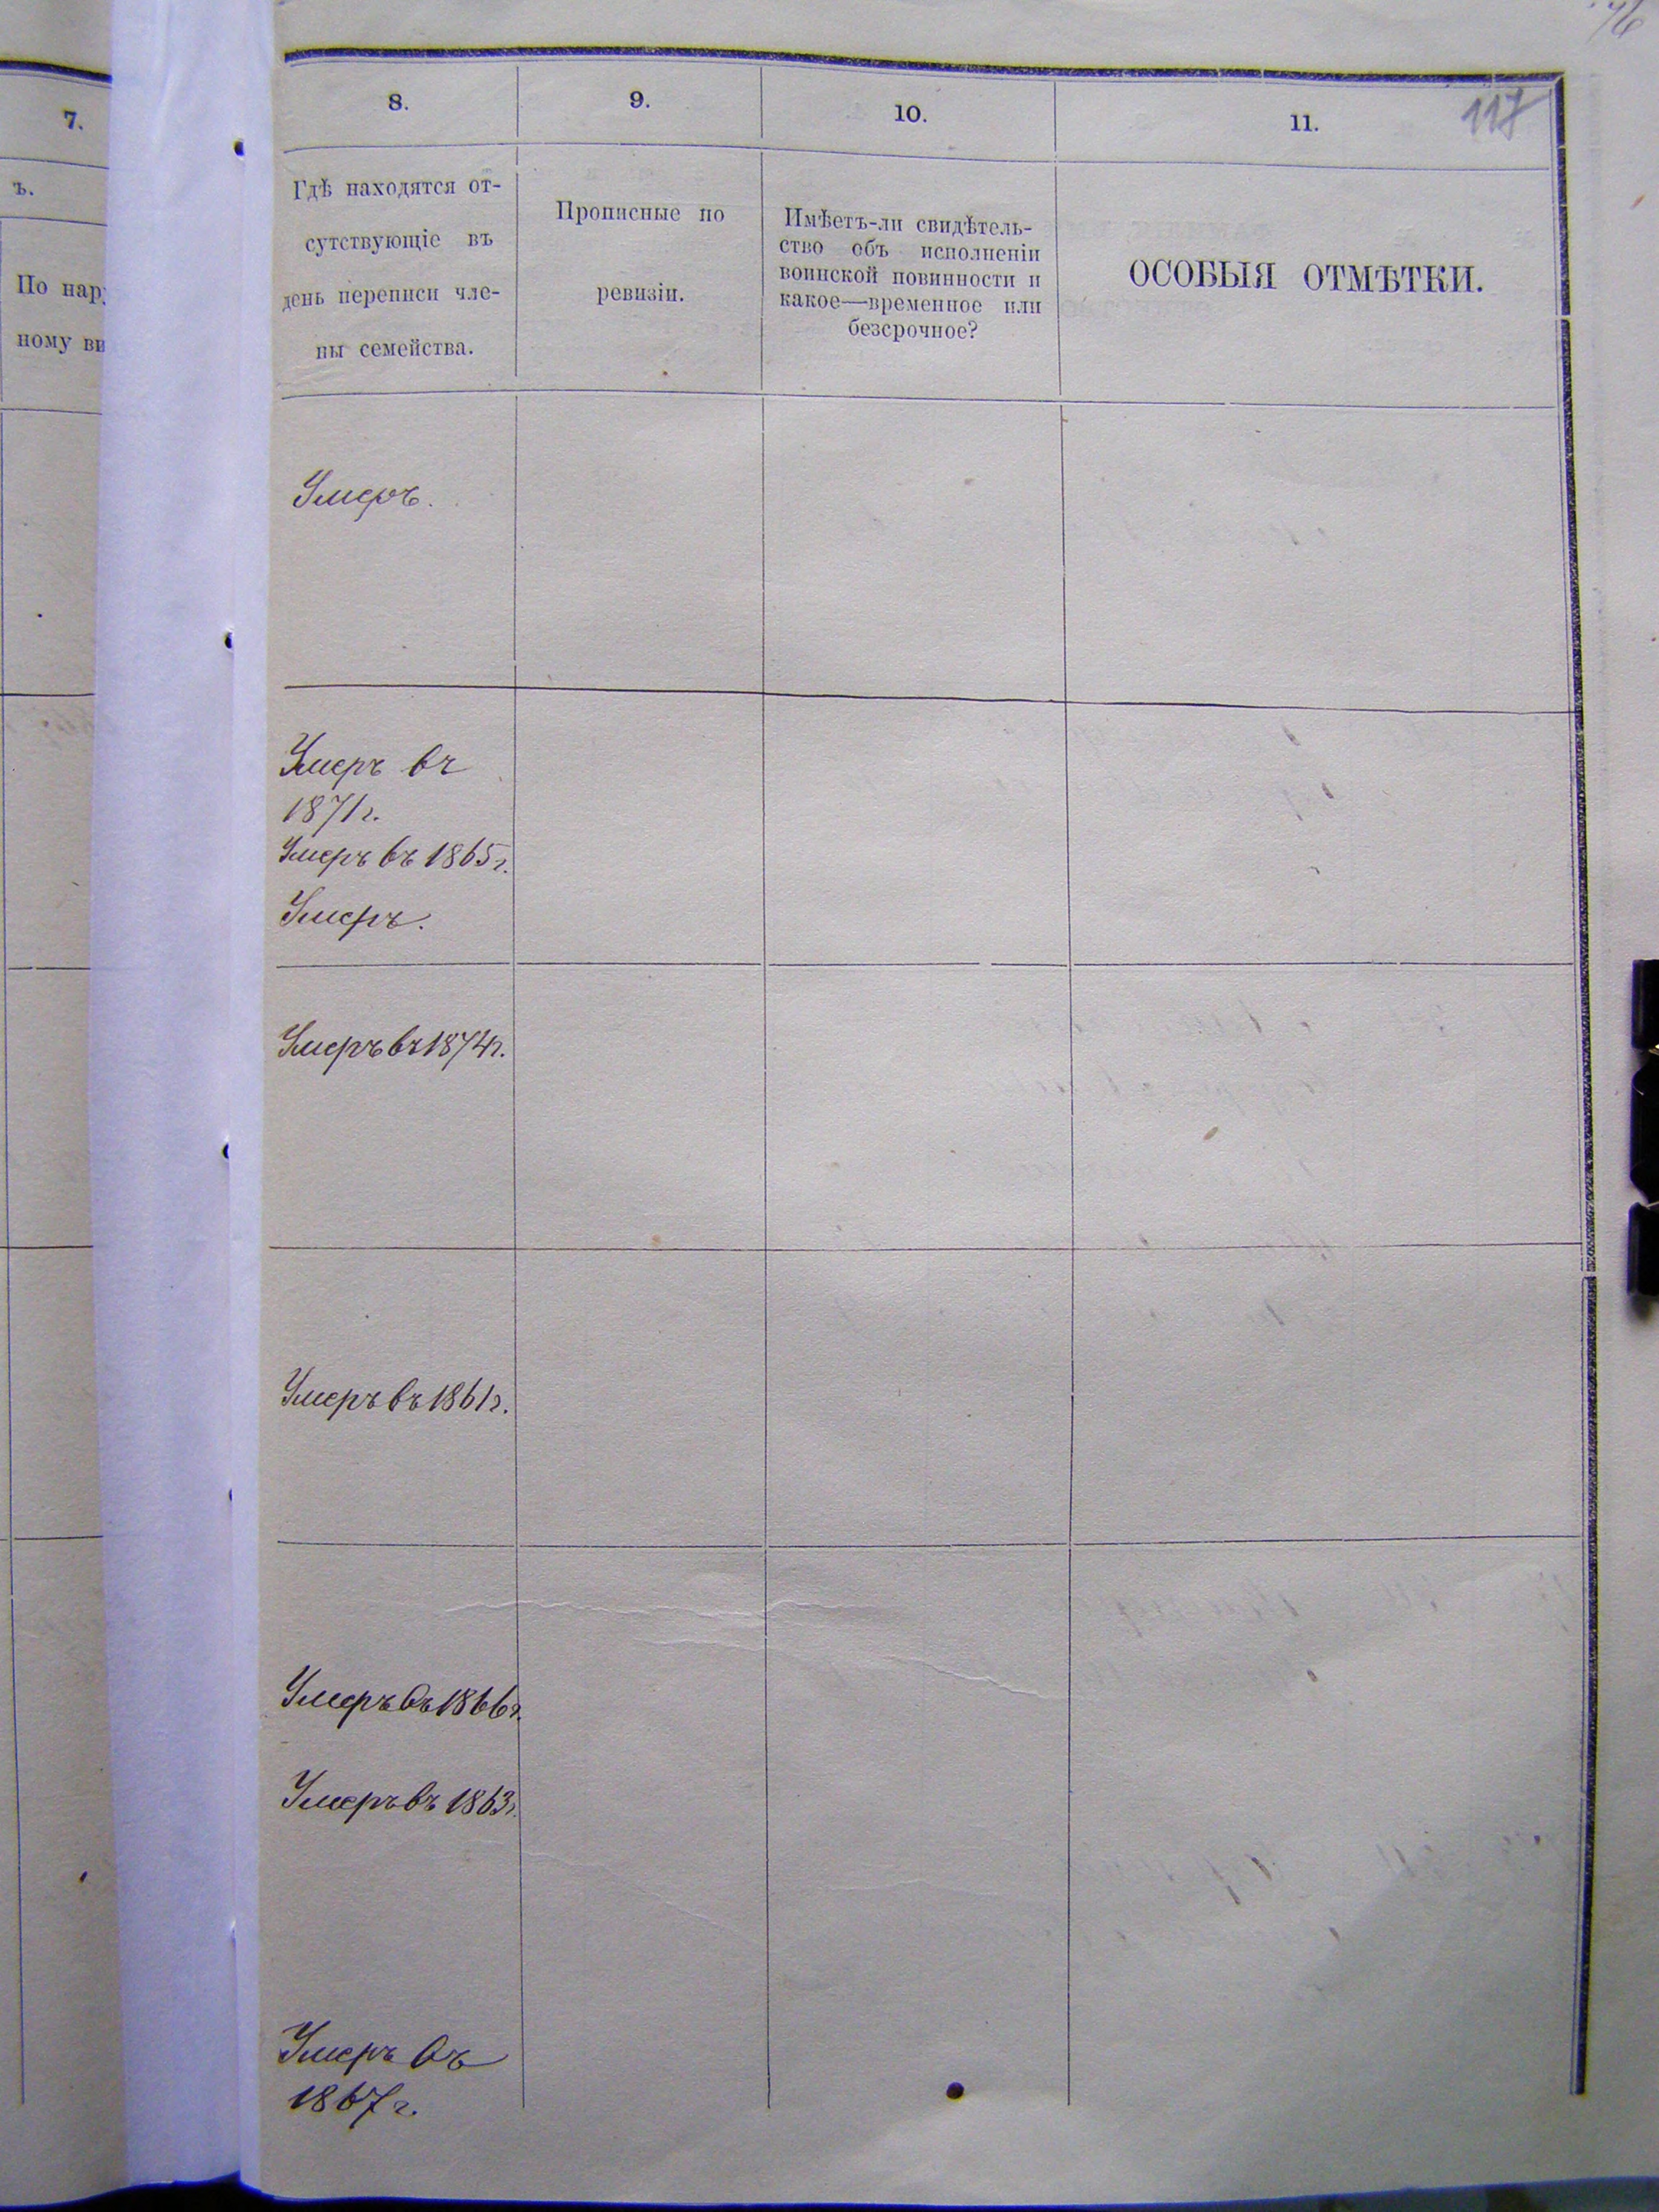 76
117
7.
8.
9.
10.
11.
ъ.
По нар
ному ви
Гдѣ находятся от-
сутствующіе въ
день переписи чле-
ны семейства.
Прописные по
ревизіи.
Имѣетъ-ли свидѣтель-
ство объ исполненіи
воинской повинности и
какое—временное или
безсрочное?
ОСОБЫЯ ОТМѢТКИ.
Умеръ.
Умеръ въ
1871 г.
Умеръ въ 1865 г.
Умеръ.
Умеръ въ 1874 г.
Умеръ въ 1861 г.
Умеръ въ 1866 г.
Умеръ въ 1863 г.
Умеръ въ
1867 г.